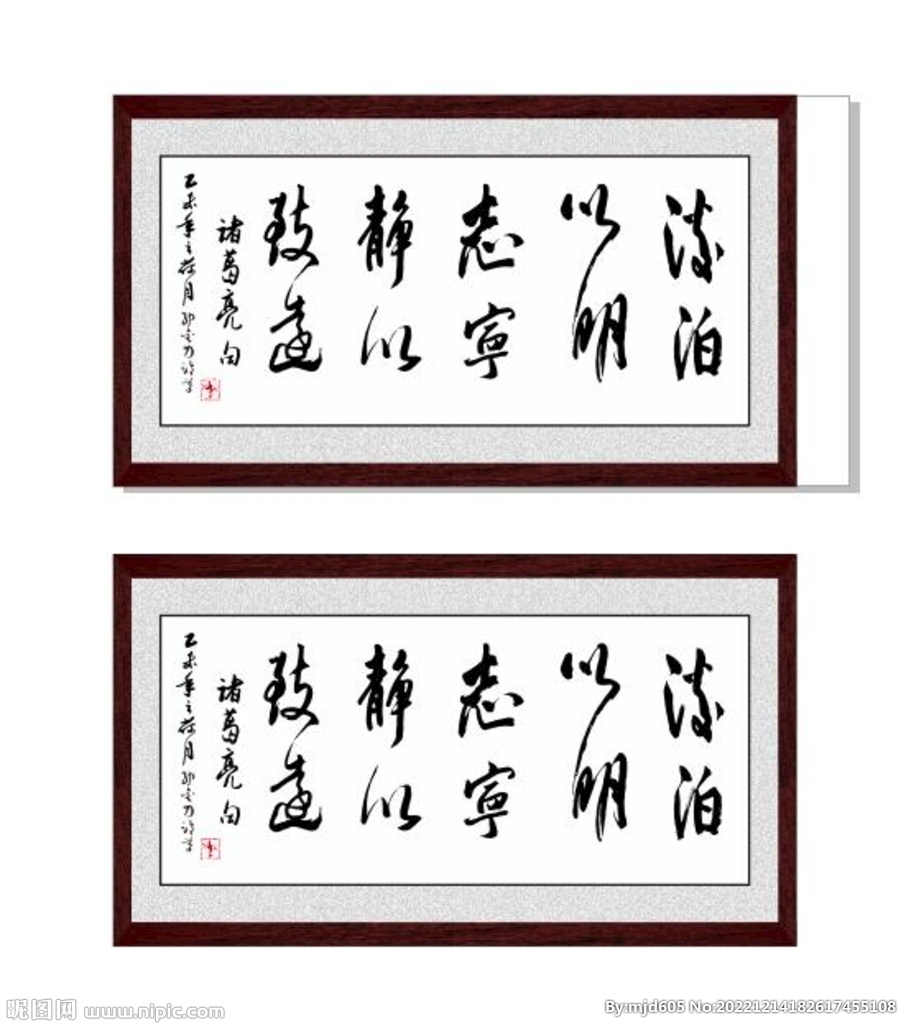 淡泊
以明
志宁
静以
致远
诸葛亮句
乙未年之荷月
淡泊
以明
志宁
静以
致远
诸葛亮句
乙未年之荷月
昵图网 www.nipic.com
By:mjd605 No:20221214182617455108